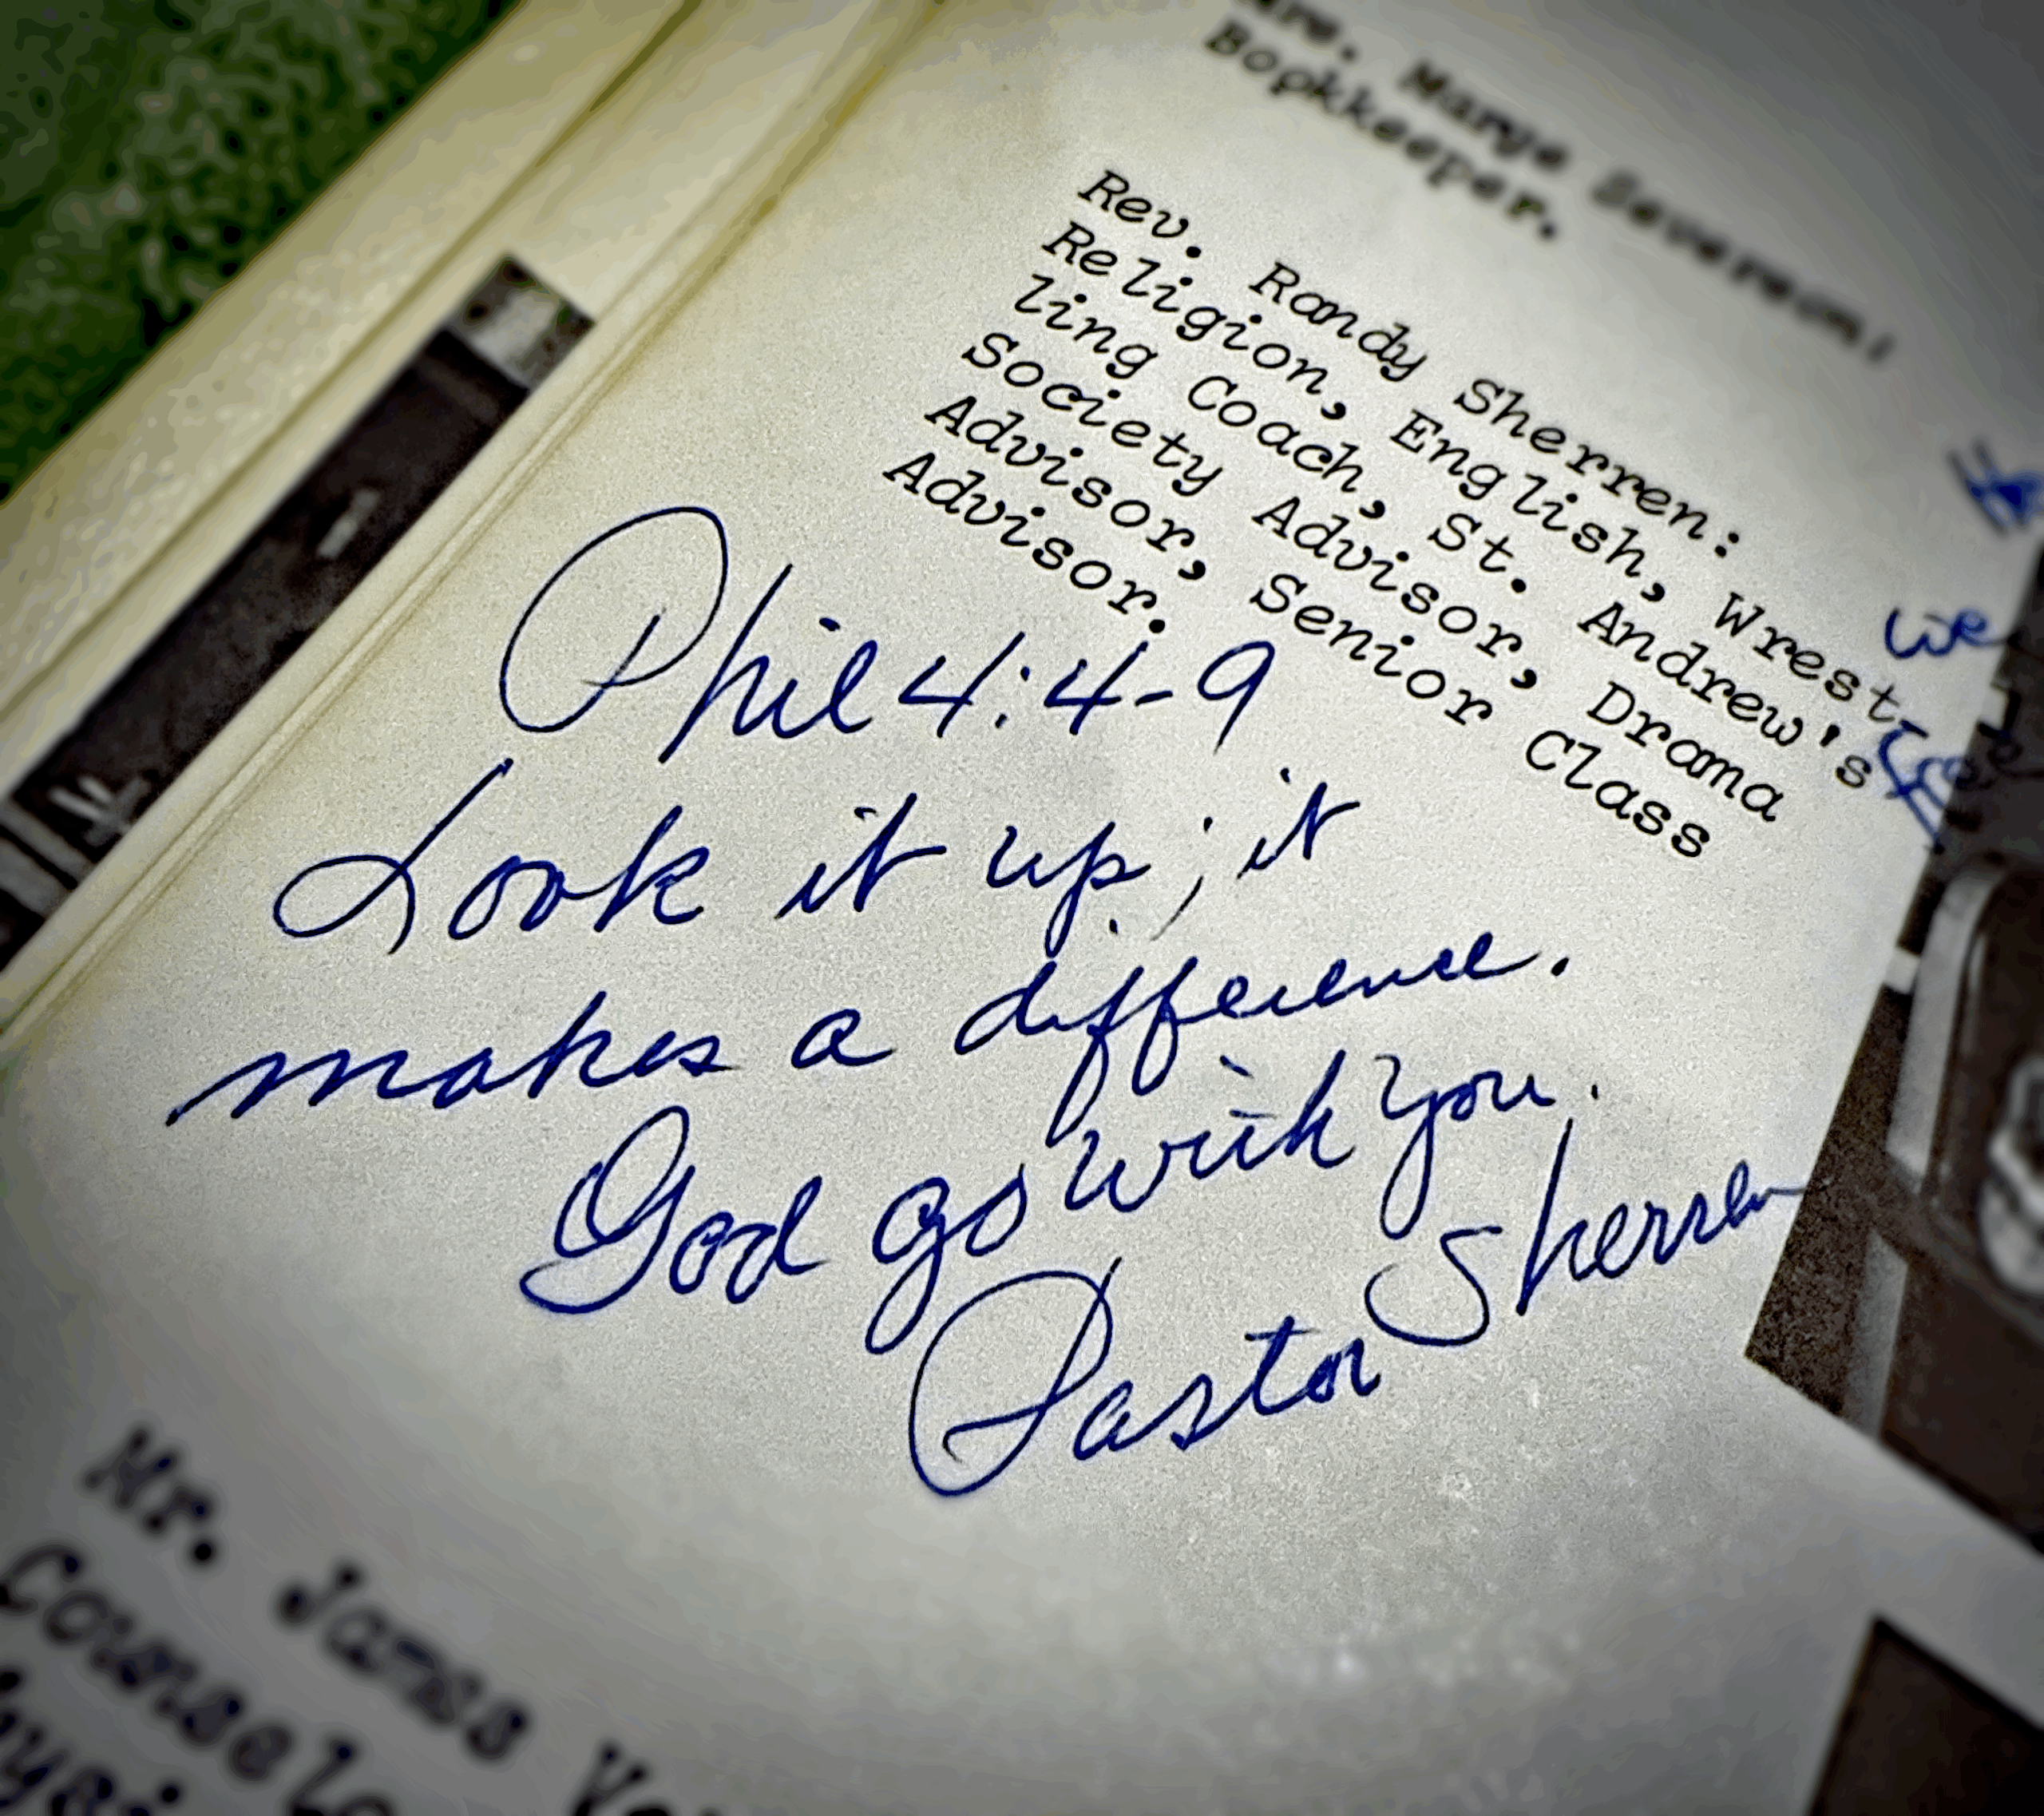 Marge
Bookkeeper.
Rev. Randy Sherren:
Religion, English, Wrest-
ling Coach, St. Andrew's
Society Advisor, Drama
Advisor, Senior Class
Advisor.
we
free
Phil 4:4-9
Look it up; it
makes a difference.
God go with you.
Pastor Sherren
Mr. James